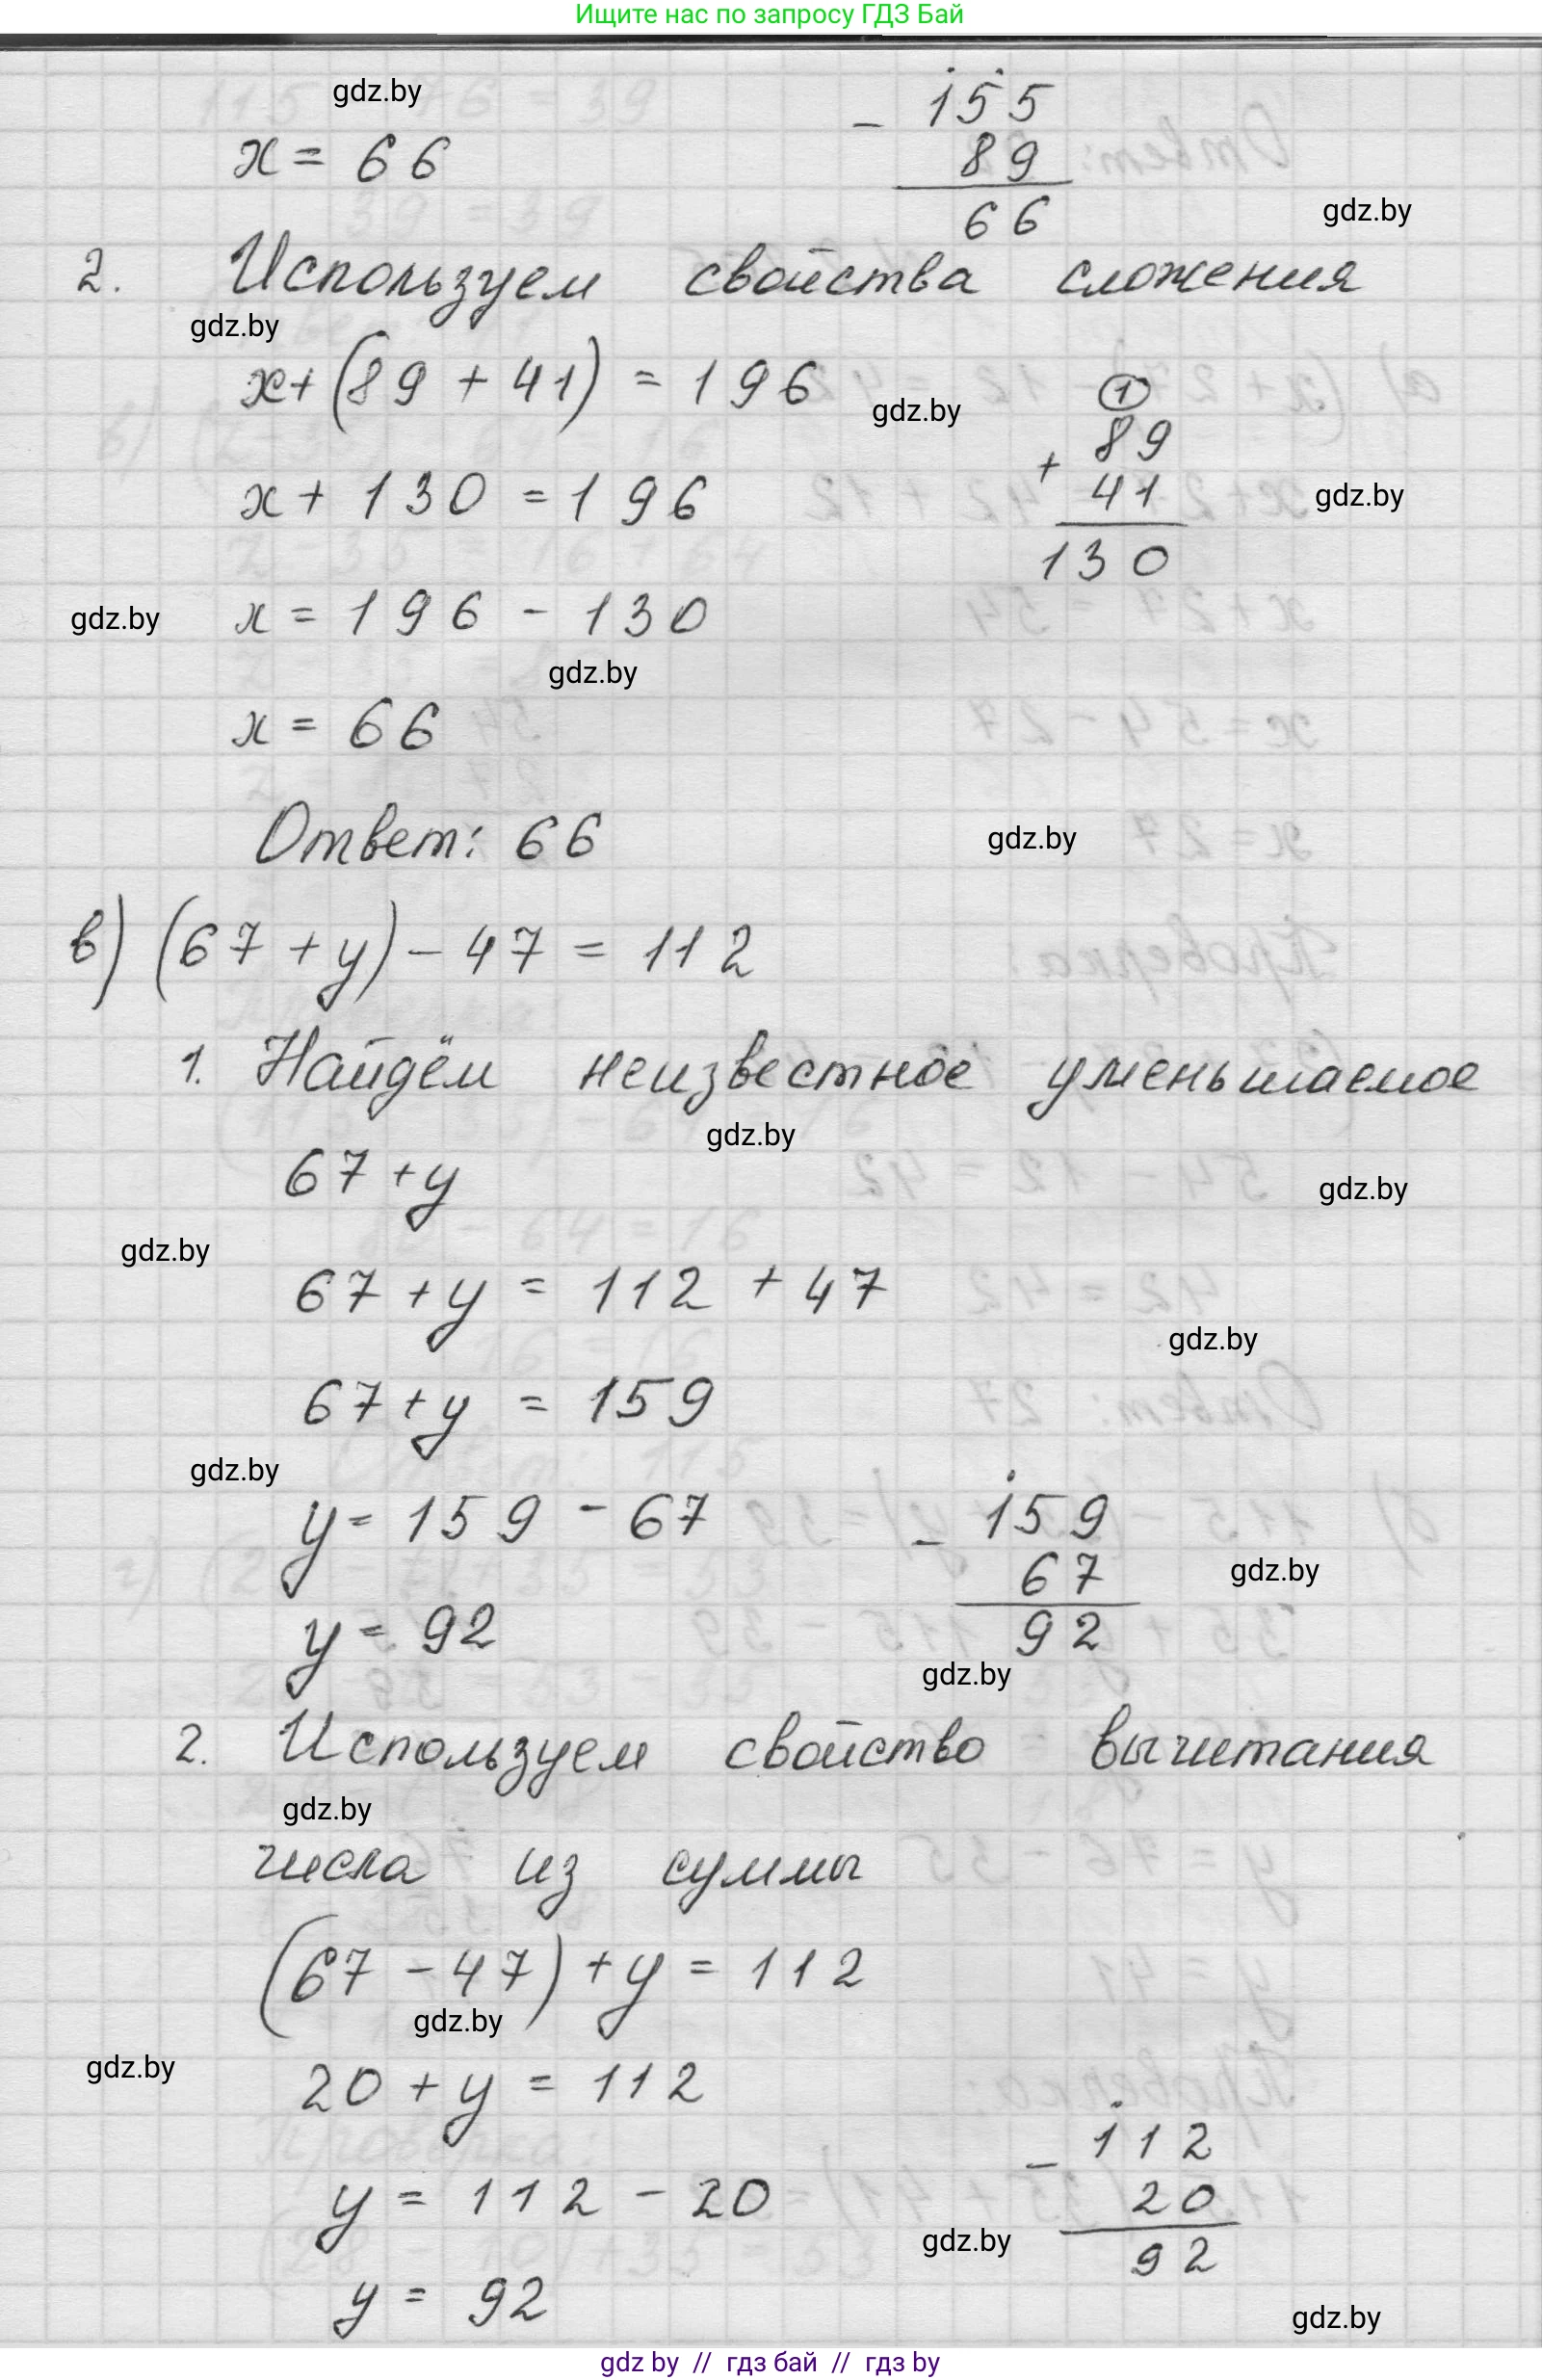 Ищите нас по запросу ГДЗ Бай
gdz.by
155
x = 66
− 89
66
gdz.by
2. Используем свойства сложения
gdz.by
x + (89 + 41) = 196
gdz.by
1
89
x + 130 = 196
+ 41
gdz.by
130
gdz.by
x = 196 - 130
gdz.by
x = 66
Ответ: 66
gdz.by
в) (67 + y) - 47 = 112
1. Найдём неизвестное уменьшаемое
gdz.by
67 + y
gdz.by
gdz.by
67 + y = 112 + 47
gdz.by
67 + y = 159
gdz.by
y = 159 - 67
159
− 67
gdz.by
y = 92
92
gdz.by
2. Используем свойство вычитания
gdz.by
числа из суммы
(67 - 47) + y = 112
gdz.by
gdz.by
20 + y = 112
112
y = 112 - 20
− 20
gdz.by
92
y = 92
gdz.by
gdz by // гдз бай // гдз by